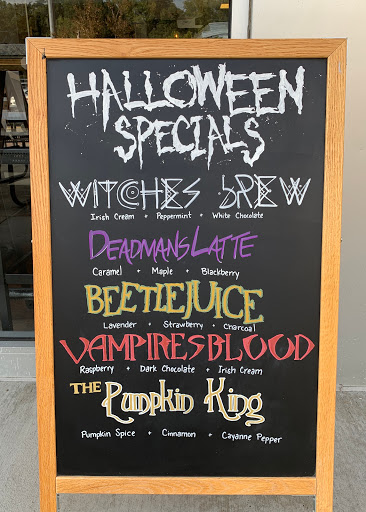 HALLOWEEN
SPECIALS
WITCHES BREW
Irish Cream + Peppermint + White Chocolate
DEADMANS LATTE
Caramel + Maple + Blackberry
BEETLEJUICE
Lavender + Strawberry + Charcoal
VAMPIRES BLOOD
Raspberry + Dark Chocolate + Irish Cream
THE Pumpkin King
Pumpkin Spice + Cinnamon + Cayanne Pepper